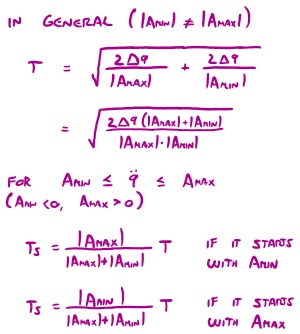 IN GENERAL (|AMIN| ≠ |AMAX|)
T = √(2Δq / |AMAX| + 2Δq / |AMIN|)
= √(2Δq (|AMAX|+|AMIN|) / |AMAX|·|AMIN|)
FOR AMIN ≤ q̈ ≤ AMAX
(AMIN <0, AMAX >0)
Ts = |AMAX| / (|AMAX|+|AMIN|) T IF IT STARTS
WITH AMIN
Ts = |AMIN| / (|AMAX|+|AMIN|) T IF IT STARTS
WITH AMAX